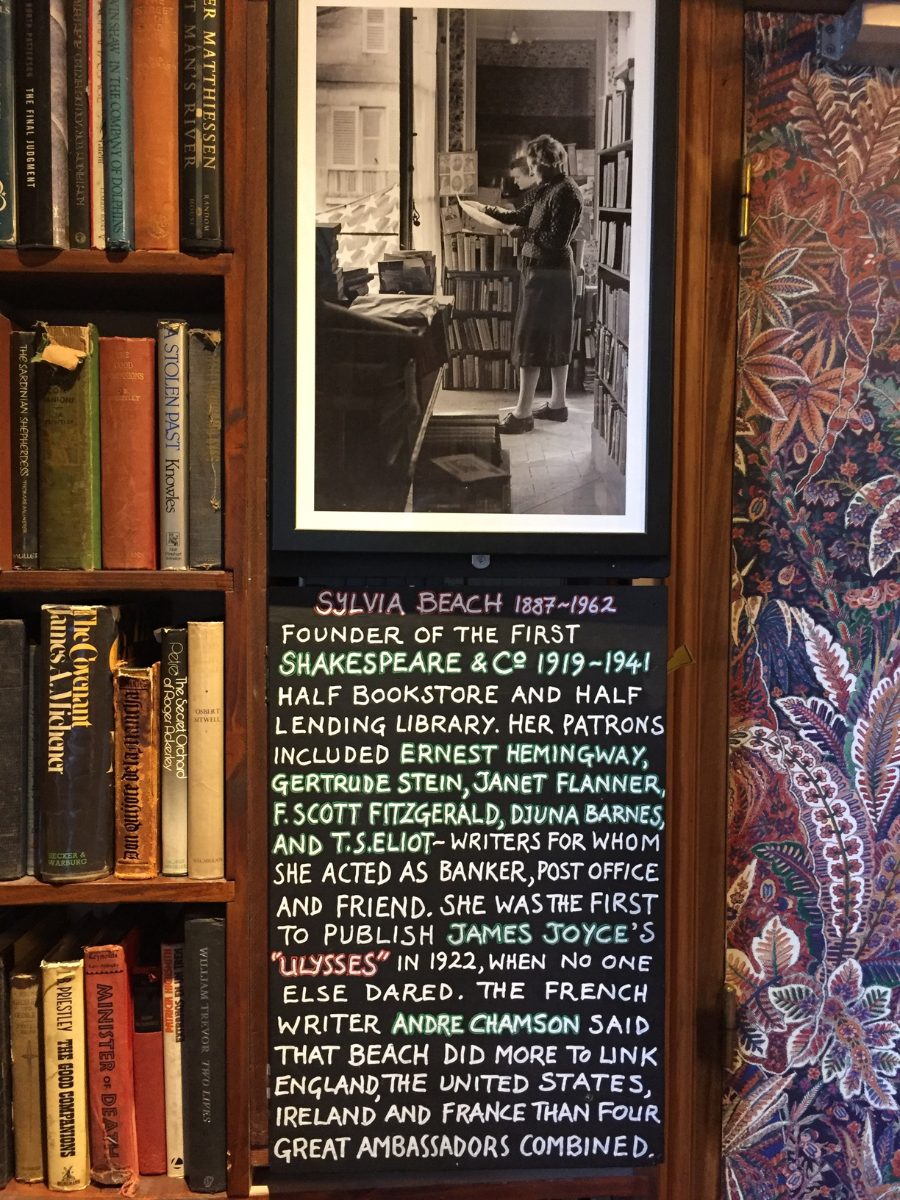 THE FINAL JUDGMENT
IN THE COMPANY OF DOLPHINS
MAN'S RIVER
MATTHIESSEN
RANDOM
THE SARDINIAN SHEPHERDESS
A STOLEN PAST Knowles
The Covenant
James A. Michener
SECKER &
WARBURG
The Secret Orchard
of Roger Ackerley
OSBERT
SITWELL
PRIESTLEY THE GOOD COMPANIONS
MINISTER OF DEATH
WILLIAM TREVOR TWO LIVES
SYLVIA BEACH 1887~1962
FOUNDER OF THE FIRST
SHAKESPEARE & Cº 1919~1941
HALF BOOKSTORE AND HALF
LENDING LIBRARY. HER PATRONS
INCLUDED ERNEST HEMINGWAY,
GERTRUDE STEIN, JANET FLANNER,
F. SCOTT FITZGERALD, DJUNA BARNES,
AND T.S.ELIOT~ WRITERS FOR WHOM
SHE ACTED AS BANKER, POST OFFICE
AND FRIEND. SHE WAS THE FIRST
TO PUBLISH JAMES JOYCE'S
"ULYSSES" IN 1922, WHEN NO ONE
ELSE DARED. THE FRENCH
WRITER ANDRE CHAMSON SAID
THAT BEACH DID MORE TO LINK
ENGLAND, THE UNITED STATES,
IRELAND AND FRANCE THAN FOUR
GREAT AMBASSADORS COMBINED.